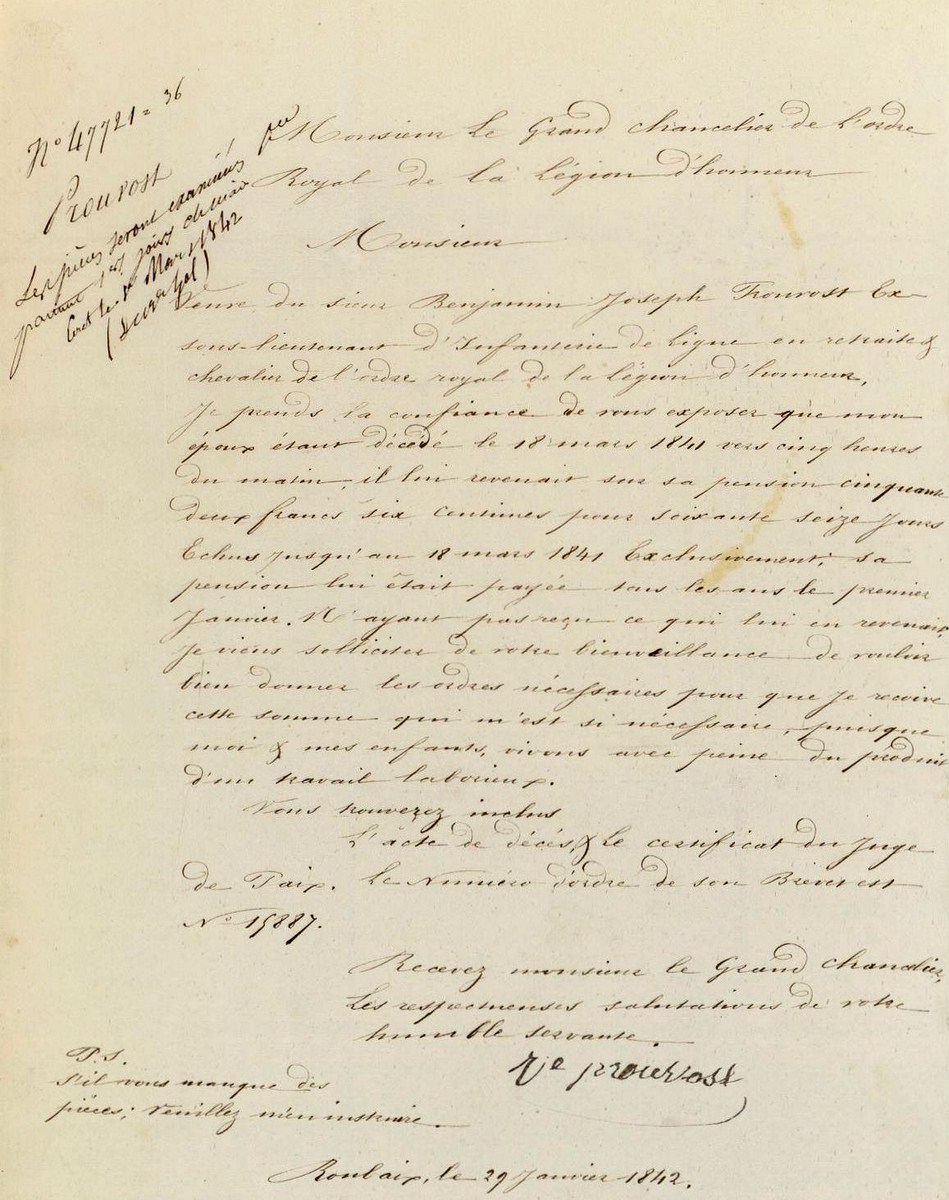 N° 47721 = 36
Prouvost
Les pièces seront examinées
Mars 1842
Monsieur Le Grand Chancelier de L'ordre
Royal de la Légion d'honneur
Monsieur
Veuve du sieur Benjamin Joseph Prouvost Ex-
sous-lieutenant d'Infanterie de Ligne en retraite &
chevalier de l'ordre royal de la Légion d'honneur,
Je prends la confiance de vous exposer que mon
époux étant décédé le 18 mars 1841 vers cinq heures
du matin, il lui revenait sur sa pension cinquante
deux francs six centimes pour soixante seize Jours
Echus jusqu'au 18 mars 1841 Exclusivement; sa
pension lui était payée tous les ans le premier
Janvier. N'ayant pas reçu ce qui lui en revenait,
Je viens solliciter de votre bienveillance de vouloir
bien donner les ordres nécessaires pour que Je reçoive
cette somme qui m'est si nécessaire, puisque
moi & mes enfants, vivons avec peine du produit
d'un travail laborieux.
Vous trouverez inclus
L'acte de décés, & Le certificat du Juge
de Paix. Le Numéro d'ordre de son Brevet est
N° 15887.
Recevez monsieur le Grand Chancelier,
Les respectueuses salutations de votre
humble servante.
Ve prouvost
P.S.
S'il vous manque des
pièces; Veuillez m'en instruire.
Roubaix, le 29 Janvier 1842.